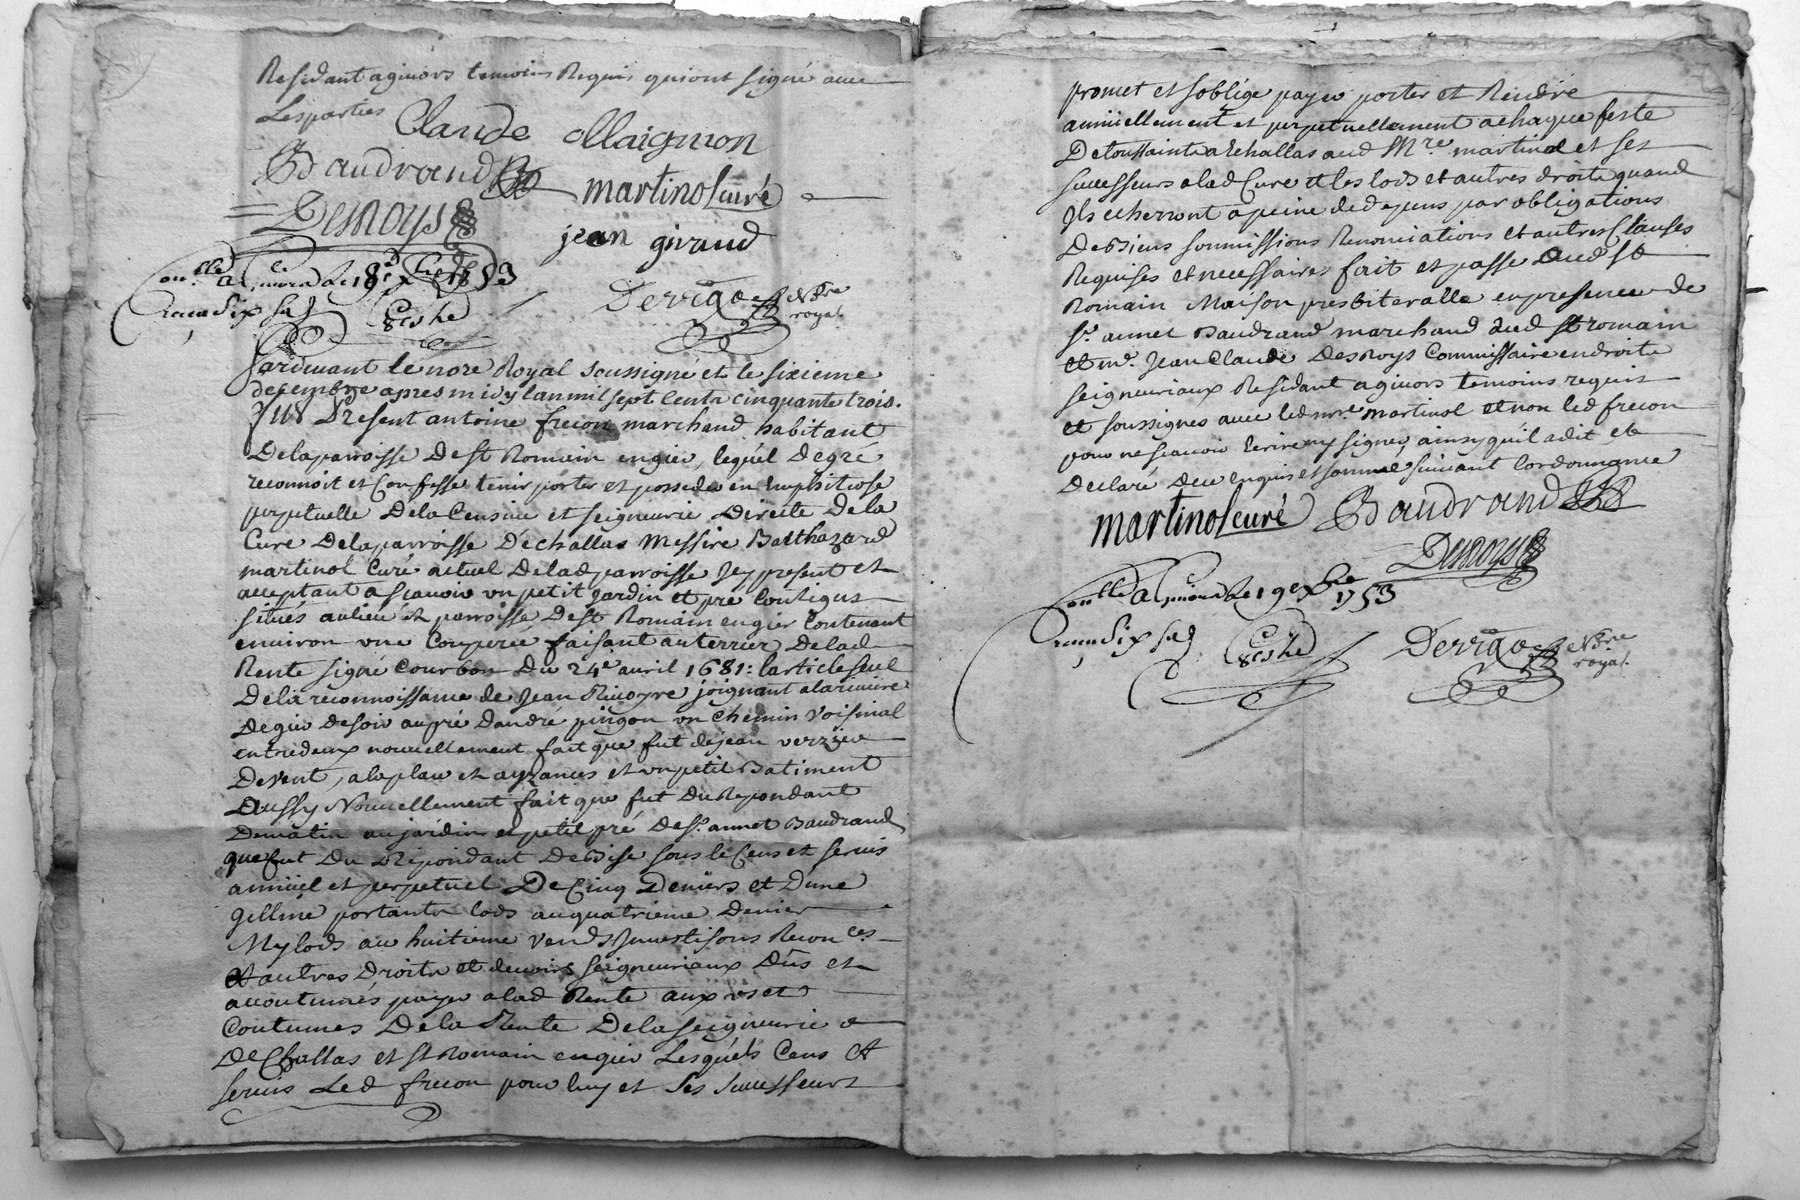 Residant agivors temoins Requis qui ont signé avec
Les parties
Claude Maignion
Baudrand
martinol curé
Desroys
jean giraud
an six sols
Derrigo Nore
royal
Pardevant le nore Royal soussigné et le sixieme
decembre apres midy lan mil sept cents cinquante trois.
fut Present antoine frecon marchand habitant
Delaparroisse De st Romain engier, lequel Degré
reconnoit et Confesse tenir porter et posseder en Emphiteose
perpetuelle Dela Censive et seigneurie Directe Dela
Cure Delaparroisse D'echallas Messire Balthazard
martinol Curé actuel Delad parroisse Jcy present et
acceptant ascavoir un petit Jardin et pré Contigus
situés aulieu et parroisse De st Romain engier Contenant
environ une Couperée faisant au terrier Delad
Rente signé Courbon Du 24e avril 1681: larticle seul
Dela reconnoissance de Jean joignant alariviere
Degier De soir aupré Dandré pingon un Chemin Voisinal
entredeux nouvellement fait que fut de jean verzieu
De vent, alaplace et ayzances et un petit Batiment
aussy Nouvellement fait que fut Du Repondant
Dematin au jardin et petit pré De sr. annet Baudrand
que fut Du Repondant De Bise sous le Cens et servis
annüel et perpetuel De Cinq Deniers et Dune
Gelline portants lods au quatrieme Denier
Mylods au huitieme vends Jnvestisons Recon ces
et autres Droits et devoirs seigneuriaux Dûs et
accoutumés payer alad Rente aux us et
Coutumes Dela Rente Dela seigneurie
De Challas et st Romain engier Lesquels Cens et
servis Led frecon pour luy et ses successeurs
promet et soblige payer porter et Rendre
annüellement et perpetuellement achaque feste
De toussaints a Echallas aud Mre. martinol et ses
successeurs alad Cure et les lods et autres droits quand
Jls echerront apeine de depens par obligations
De Biens sommissions Renonciations et autres Clauses
Requises et necessaires fait et passé aud st
Romain Maison presbiteralle en presence de
sr. annet Baudrand marchand dud st romain
et mr. Jean Claude Desroys Commissaire en droits
seigneuriaux Residant agivors temoins requis
et soussignes avec led mre martinol et non led frecon
pour ne scavoir Ecrire ny signer ainsy qu'il a dit et
Declaré De ce enquis et sommé suivant lordonnance
martinol curé Baudrand
Desroys
1753
an six sols
Derrigo Nore
royal